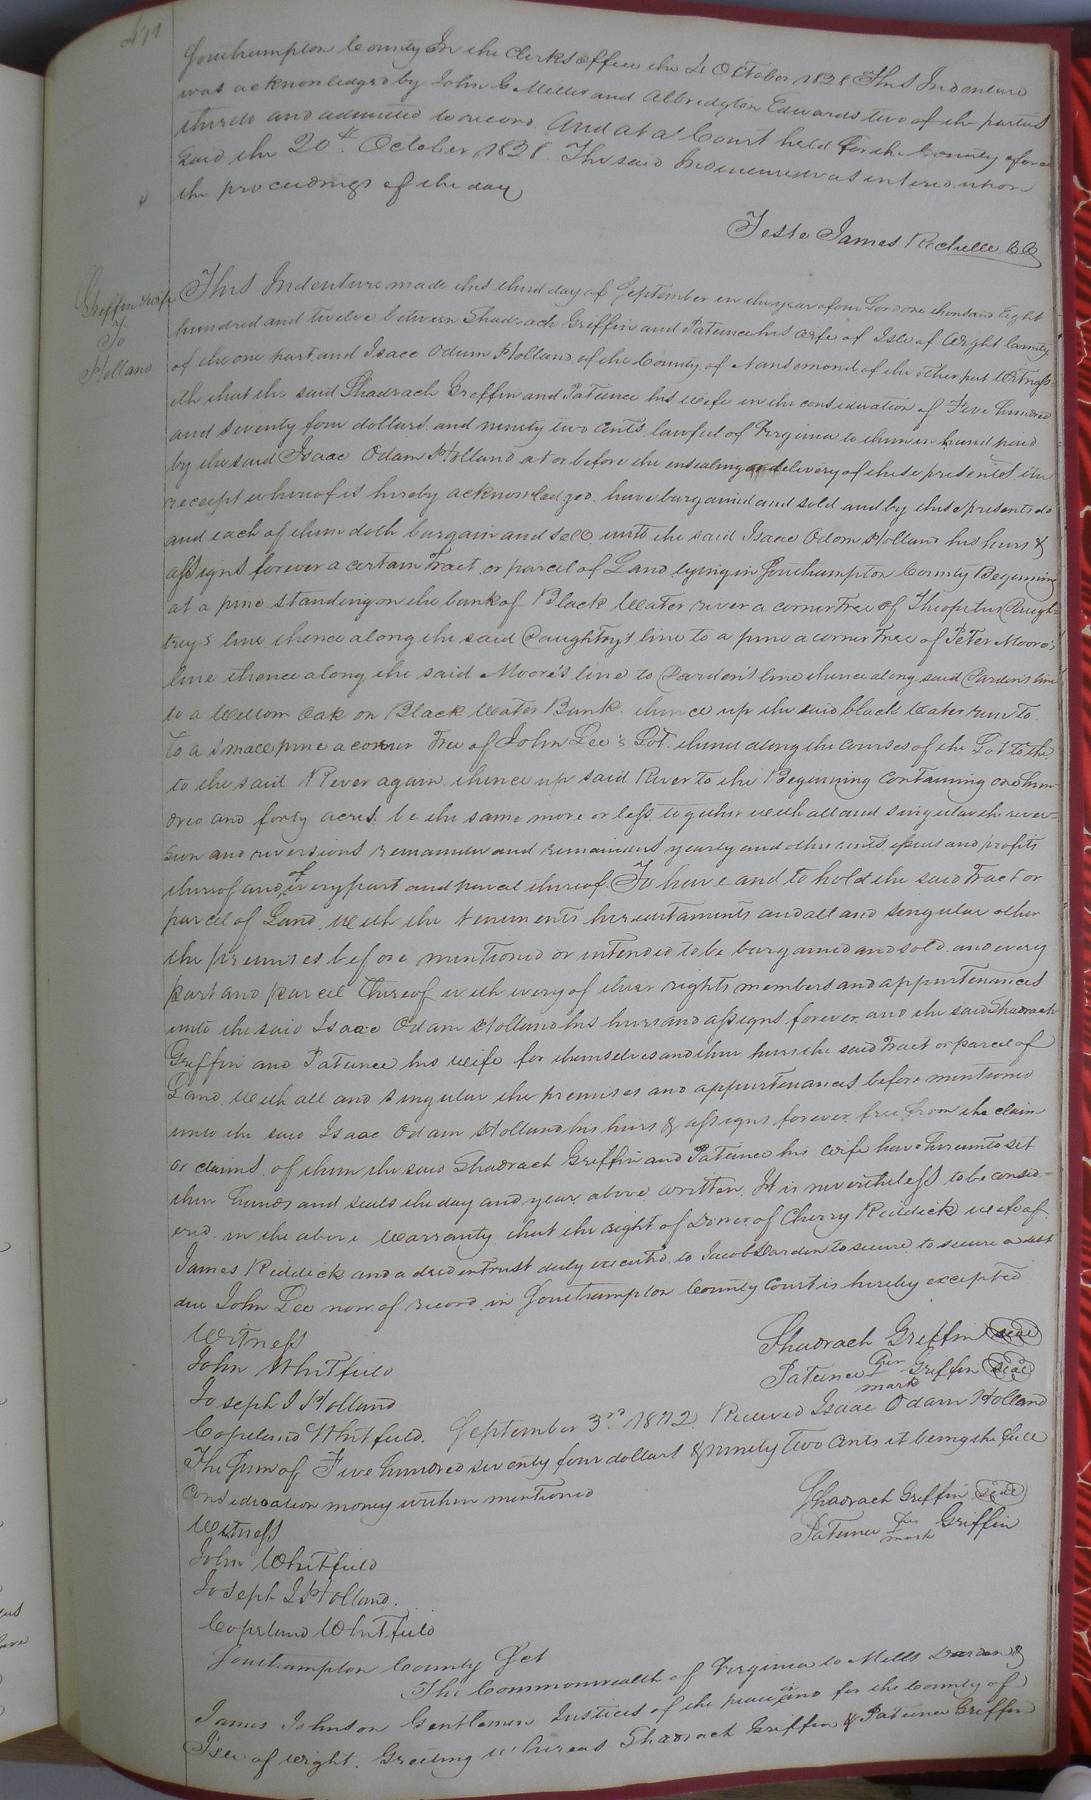 471
Southampton County In the Clerks office the 4 October 1828 This Indenture
was acknowledged by John C Miller and Albridgton Edwards two of the parties
thereto and admitted to record. And at a Court held for the County afore
said the 20th October 1828. The said Indenture was entered upon
the proceedings of the day
Teste James Rochelle CC
Griffin & wife
To
Holland
This Indenture made this third day of September in the year of our Lord one thousand Eight
hundred and twelve between Shadrach Griffin and Patience his wife of Isle of Wight County
of the one part and Isaac Odam Holland of the County of Nansemond of the other part Witness=
eth that the said Shadrach Griffin and Patience his wife in the consideration of Five hundred
and seventy four dollars and ninety two cents lawful of Virginia to them in hand paid
by the said Isaac Odam Holland at or before the ensealing and delivery of these presents the
receipt whereof is hereby acknowledged have bargained and sold and by these presents do
and each of them doth bargain and sell unto the said Isaac Odom Holland his heirs &
assigns forever a certain Tract or parcel of Land lying in Southampton County Beginning
at a pine standing on the bank of Black Water river a corner Tree of Theopilus Daugh-
trey's line thence along the said Daughtry's line to a pine a corner Tree of Peter Moore's
line thence along the said Moore's line to Darden's line thence along said Darden's line
to a Willow Oak on Black Water Bank thence up the said black water run to
to a small pine a corner Tree of John Lee's Lot thence along the courses of the Lot to the
to the said River again thence up said River to the Beginning containing one hun-
dred and forty acres be the same more or less together with all and singular the rever-
sion and reversions remainder and remainders yearly and other rents issues and profits
thereof and of every part and parcel thereof. To have and to hold the said Tract or
parcel of Land with the tenements hereditaments and all and singular other
the premises before mentioned or intended to be bargained and sold and every
part and parcel thereof with every of their rights members and appurtenances
unto the said Isaac Odam Holland his heirs and assigns forever and the said Shadrach
Griffin and Patience his wife for themselves and their heirs the said Tract or parcel of
Land with all and singular the premises and appurtenances before mentioned
unto the said Isaac Odam Holland his heirs & assigns forever free from the claim
or claims of them the said Shadrach Griffin and Patience his wife have hereunto set
their hands and seals the day and year above written It is nevertheless to be consid-
ered in the above Warranty that the right of Dower of Cherry Reddick wife of
James Reddick and a deed in trust duly executed to Jacob Darden to secure to secure a debt
due John Lee now of record in Southampton County Court is hereby excepted
Witness
Shadrach Griffin seal
John Whitfield
Patience her mark Griffin seal
Joseph J Holland
Copeland Whitfield. September 3rd 1812 Received Isaac Odam Holland
The Sum of Five hundred seventy four dollars & ninety two cents it being the full
consideration money within mentioned
Shadrach Griffin seal
Witness
Patience her mark Griffin
John Whitfield
Joseph J Holland.
Copeland Whitfield
Southampton County Sct
The Commonwealth of Virginia to Mills Darden &
James Johnson Gentlemen Justices of the peace in and for the County of
Isle of Wight. Greeting Whereas Shadrach Griffin & Patience Griffin